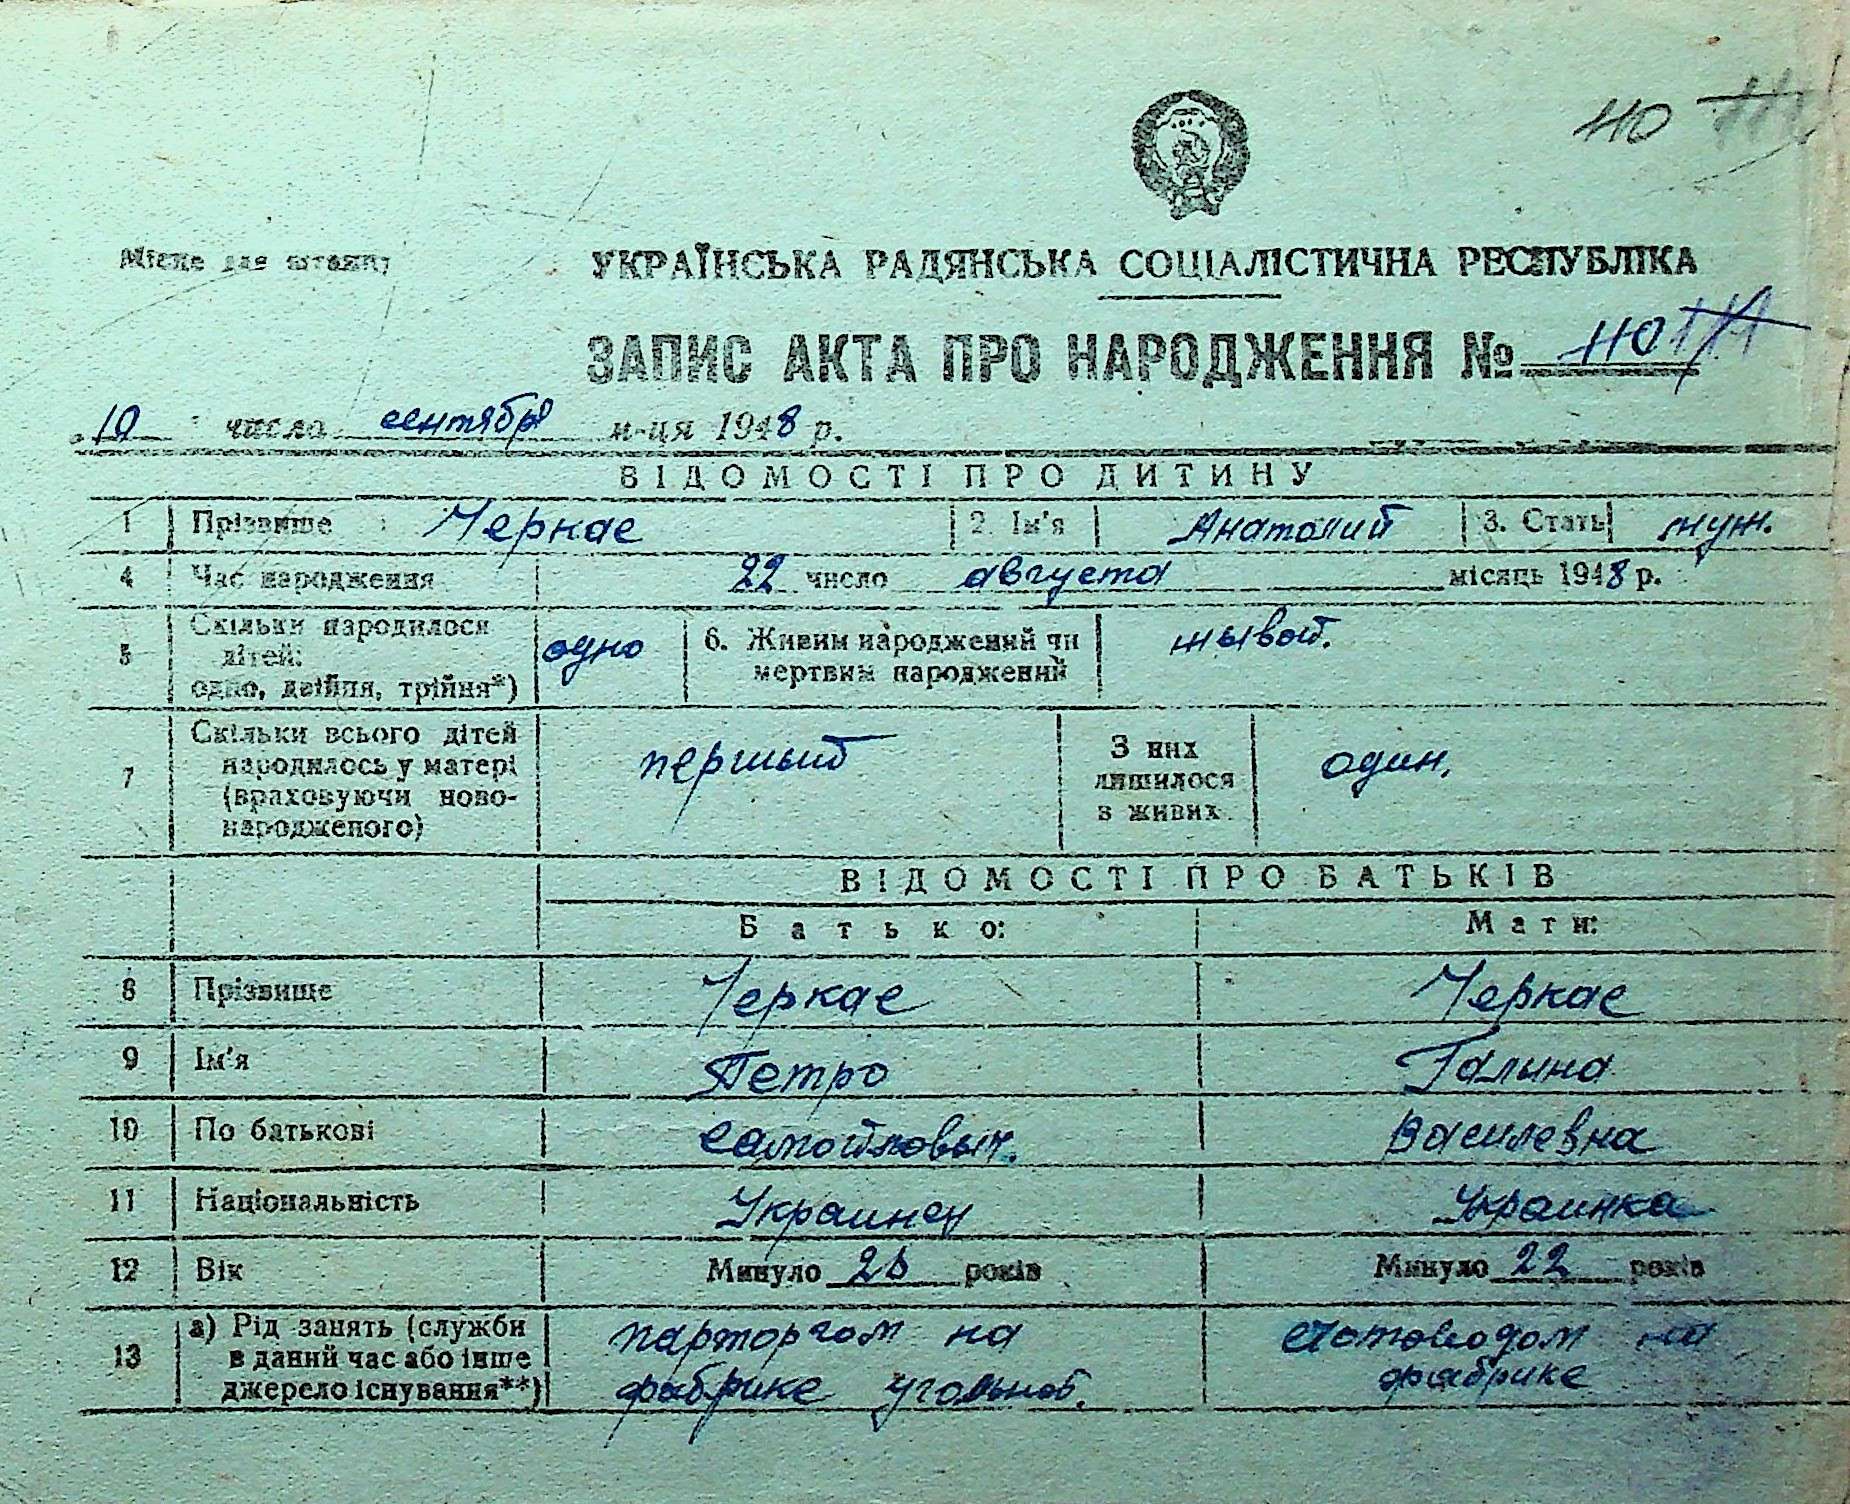 110
Місце для штампу
УКРАЇНСЬКА РАДЯНСЬКА СОЦІАЛІСТИЧНА РЕСПУБЛІКА
ЗАПИС АКТА ПРО НАРОДЖЕННЯ № 110
10 числа сентября м-ця 1948 р.
ВІДОМОСТІ ПРО ДИТИНУ
1 Прізвище Черкас 2. Ім'я Анатолий 3. Стать муж.
4 Час народження 22 число августа місяць 1948 р.
5 Скільки народилося дітей: одно, двійня, трійня*) одно 6. Живим народжений чи мертвим народжений жывой.
7 Скільки всього дітей народилось у матері (враховуючи новонародженого) першый З них лишилося в живих один.
ВІДОМОСТІ ПРО БАТЬКІВ
Батько: Мати:
8 Прізвище Черкас Черкас
9 Ім'я Петро Галына
10 По батькові Самойловыч. Василевна
11 Національність Украинец Украинка
12 Вік Минуло років Минуло 22 років
13 а) Рід занять (служби в даний час або інше джерело існування**) парторгом на фабрике угольной. на фабрике